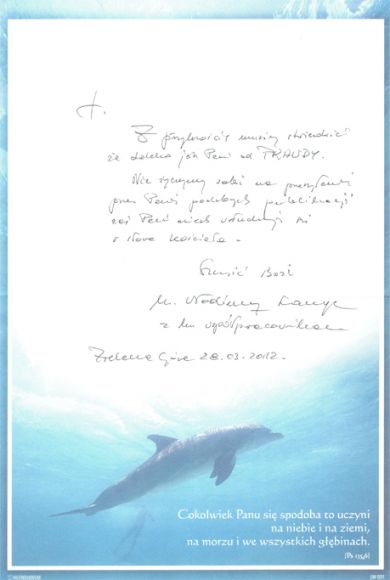 Z przykrością musimy stwierdzić
że daleka jest Pani od PRAWDY.
Nie życzymy sobie na przesyłanie
przez Panią podobnych publikacji
zaś Pani niech się
w słowa Kościoła.
Szczęść Boże
ks. Włodzimierz
z ks. współpracownikami
Zielona Góra 28.03.2012.
Cokolwiek Panu się spodoba to uczyni
na niebie i na ziemi,
na morzu i we wszystkich głębinach.
(Ps 135,6)